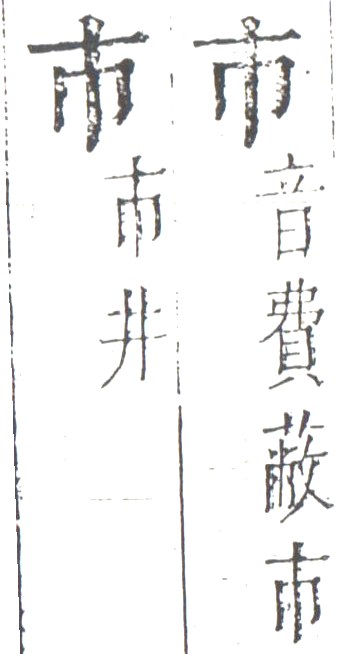 巿音費蔽巿
市市井